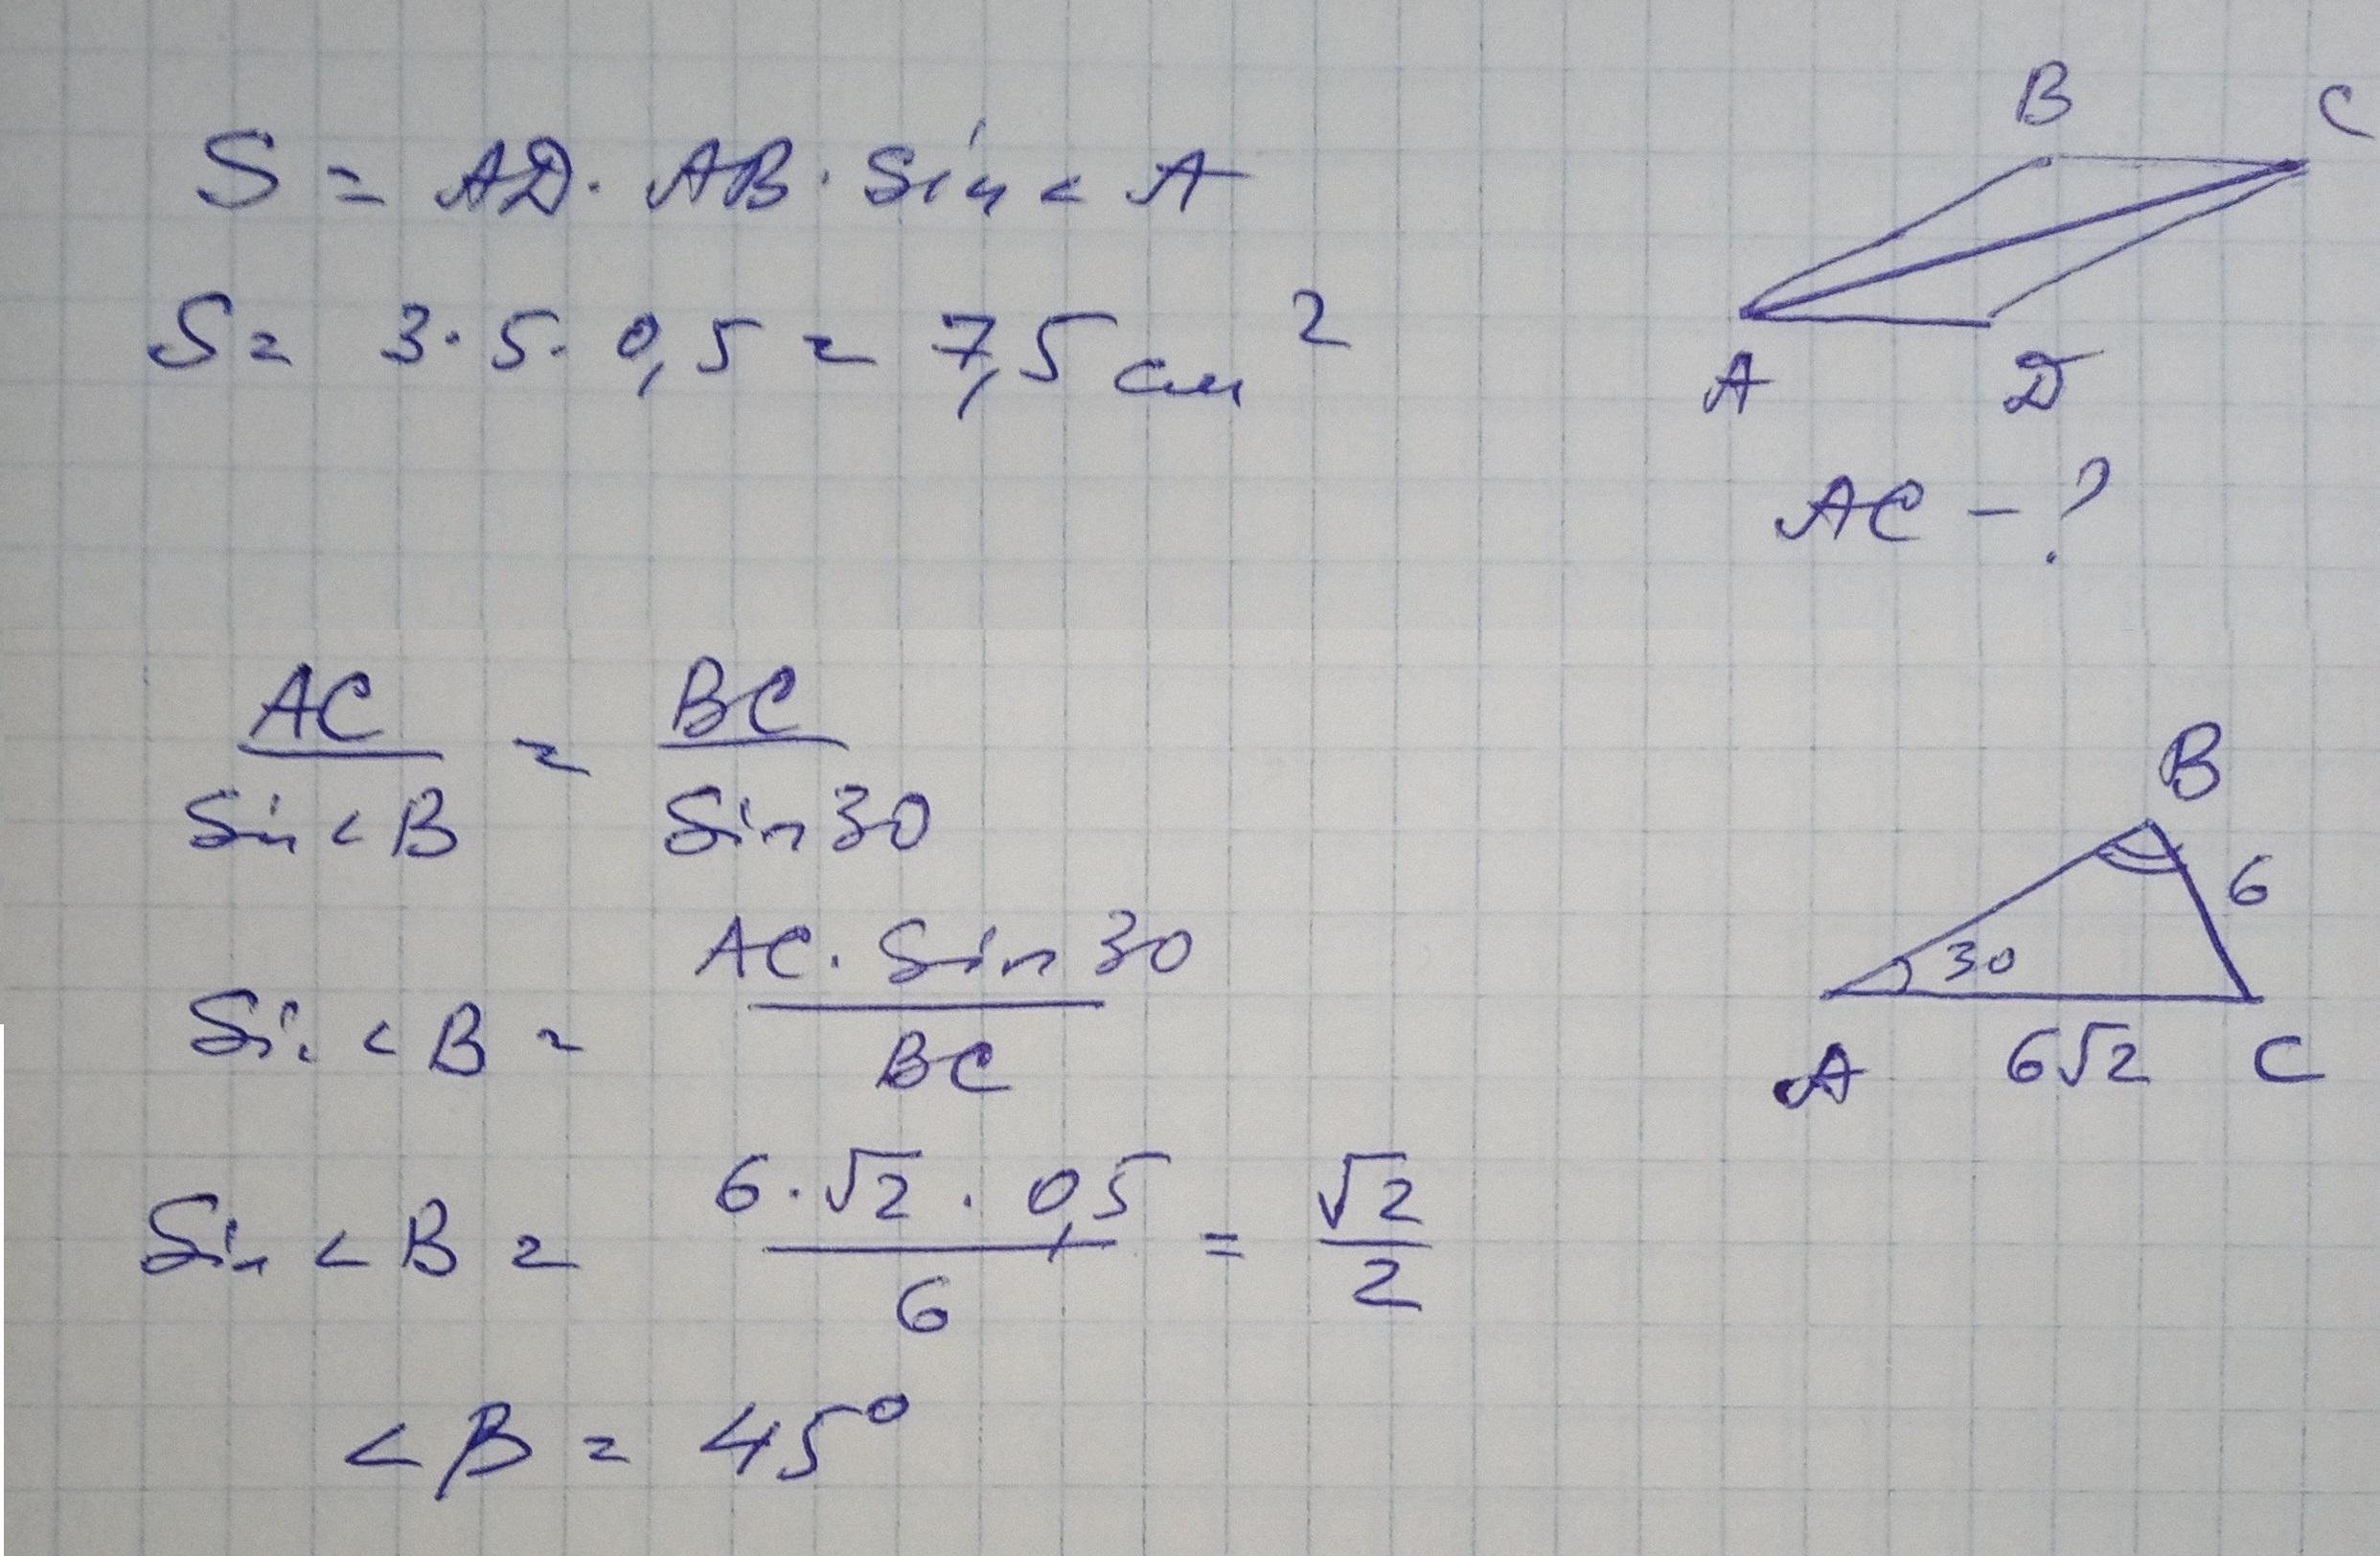 S = AD · AB · Sin < A
S = 3 · 5 · 0,5 = 7,5 см²
B
C
A
D
AC - ?
AC / Sin < B = BC / Sin 30
Sin < B = AC · Sin 30 / BC
Sin < B = 6 · √2 · 0,5 / 6 = √2 / 2
< B = 45°
B
6
30
A
6√2
C